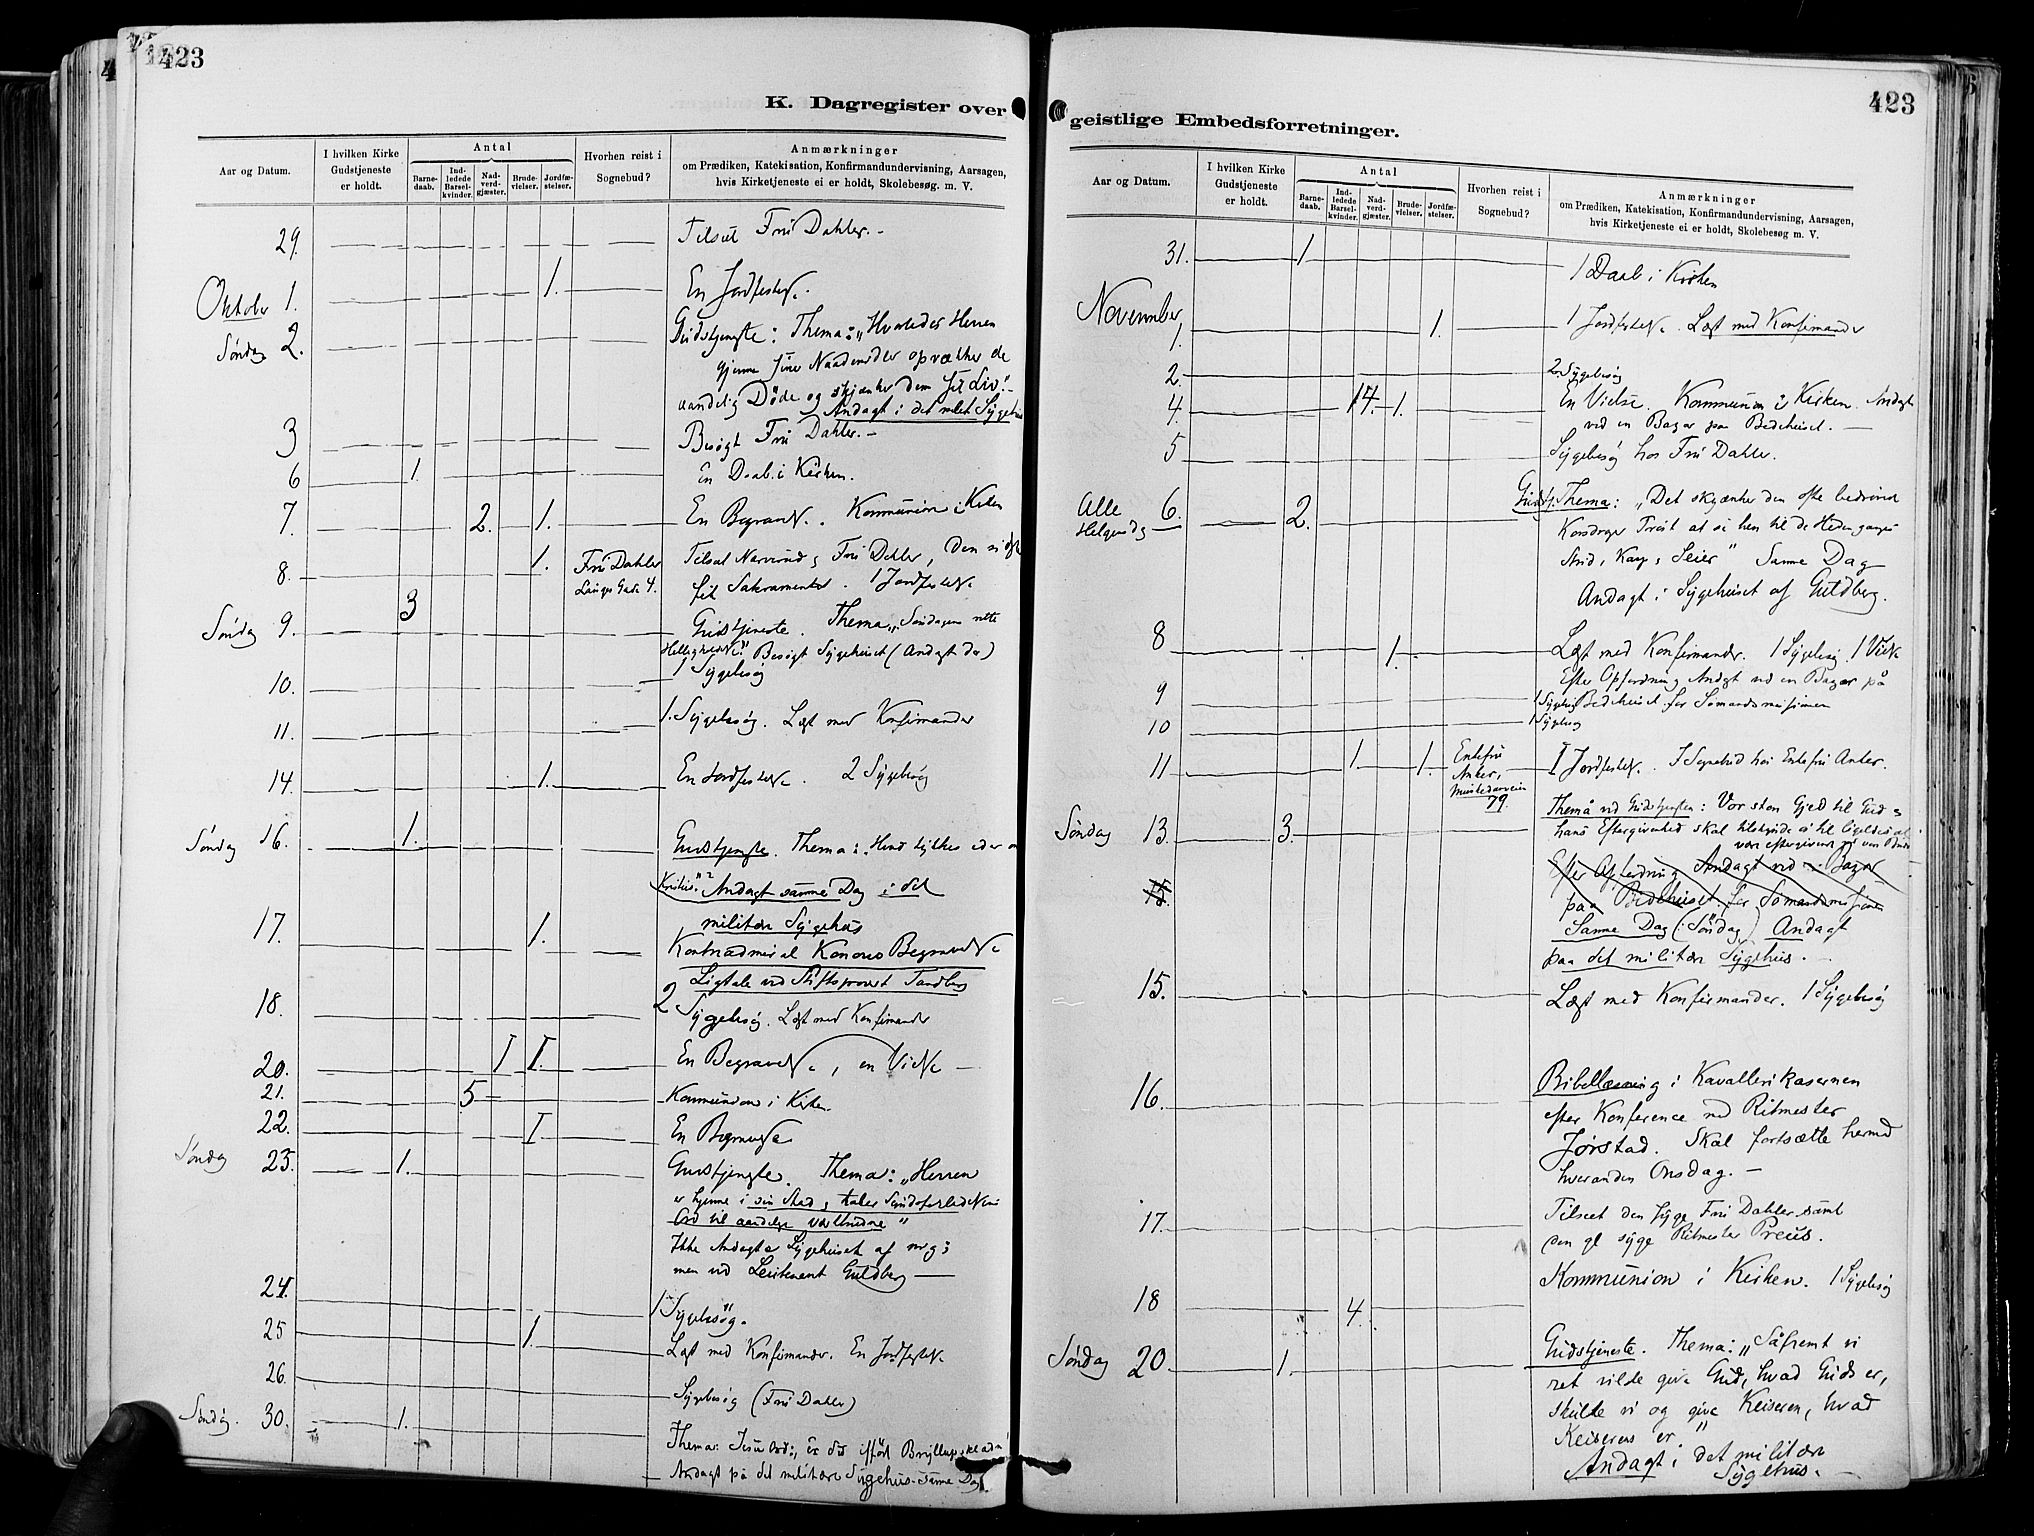 423
K. Dagregister over
Aar og Datum.
I hvilken Kirke
Gudstjeneste
er holdt.
Antal
Barne-
daab.
Ind-
ledede
Barsel-
kvinder.
Nad-
verd-
gjæster.
Brude-
vielser.
Jordfæ-
stelser.
Hvorhen reist i
Sognebud?
Anmærkninger
om Prædiken, Katekisation, Konfirmandundervisning, Aarsagen,
hvis Kirketjeneste ei er holdt, Skolebesøg m. V.
29. Tilset Fru Dahler.
Oktober 1. 1. En Jordfestelse.
Søndag 2. Gudstjeneste: Thema: "Hvorledes Herren
gjennem sine Naademidler opvækker de
aandelig Døde og skjænker dem sit Liv."
Andagt i det milit. Sygehus
3 Besøgt Fru Dahler.
6 1. En Daab i Kirken.
7. 2. 1. En Begravelse. Kommunion i Kirken
8. 1. Fru Dahler Tilset Fru Dahler,
Langes Gade 4. Sakramentet. 1 Jordfestelse
Søndag 9. 3 Gudstjeneste. Thema "Søndagens rette
Helligholdelse." Besøgt Sygehuset (Andagt der)
10. 1 Sygebesøg
11. 1. Sygebesøg. Læst med Konfirmander
14. 1. En Jordfestelse. 2 Sygebesøg
Søndag 16. 1. Gudstjeneste. Thema:
Kristus"? Andagt samme Dag i det
militære Sygehus
17. 1. Kontreadmiral Konows Begravelse
Ligtale ved Stiftsprovst Tandberg
18. 2 Sygebesøg. Læst med Konfirmander
20. 1 1. En Begravelse, en Vielse
21. 5 Kommunion i Kirken.
22. 1 En Begravelse
Søndag 23. 1. Gudstjeneste. Thema: "Herren
er hjemme i sin Stad,
Ikke Andagt i Sygehuset af mig;
men ved Leutenant Guldberg
24. 1 Sygebesøg.
25 1. Læst med Konfirmander. En Jordfestelse
26. Sygebesøg (Fru Dahler)
Søndag. 30. 1. Thema: Jesu Ord:, er du iført Bryllupsklædn
Andagt på det militære Sygehus samme Dag
423
geistlige Embedsforretninger.
Aar og Datum.
I hvilken Kirke
Gudstjeneste
er holdt.
Antal
Barne-
daab.
Ind-
ledede
Barsel-
kvinder.
Nad-
verd-
gjæster.
Brude-
vielser.
Jordfæ-
stelser.
Hvorhen reist i
Sognebud?
Anmærkninger
om Prædiken, Katekisation, Konfirmandundervisning, Aarsagen,
hvis Kirketjeneste ei er holdt, Skolebesøg m. V.
31. 1 1 Daab i Kirken
November 1. 1. 1 Jordfestelse. Læst med Konfirmander
2. 2 Sygebesøg
4. 14. 1. En Vielse. Kommunion i Kirken. Andagt
ved en Bazar paa Bedehuset.
5 Sygebesøg hos Fru Dahler.
Alle 6. 2. Gudstj. Thema: "Det skjænker den ofte bedrøvede
Helgensdag Korsdrager Trøst at se hen til de Hedengangnes
Strid, Kamp, Seier" Samme Dag
Andagt i Sygehuset af Guldberg.
8 1. Læst med Konfirmander. 1 Sygebesøg. 1 Vielse
Efter Opfordring Andagt ved en Bazar på
9 1 Sygebesøg Bedehuset for Sømandsmissionen
10 1 Sygebesøg
11 1 1. Enkefru
Anker,
79.
1 Jordfestelse. I Sognebud hos Enkefru Anker.
Søndag 13. 3. Thema ved Gudstjenesten: Vor store Gjeld til Gud
hans Eftergivenhed skal
15. Efter Opfordring Andagt ved Bazar
paa Bedehuset for Sømandsmissionen
Samme Dag (Søndag) Andagt
paa det militære Sygehus.
15. Læst med Konfirmander. 1 Sygebesøg
16. Bibellæsning i Kavallerikasernen
efter Konference med Ritmester
Jørstad. Skal fortsætte hermed
hveranden Onsdag.
17. Tilseet den syge Fru Dahler samt
den gl syge Ritmester Preus.
18 4. Kommunion i Kirken. 1 Sygebesøg
Søndag 20. 1. Gudstjeneste. Thema: "Såfremt vi
ret vilde give Gud, hvad Guds er,
skulle vi og give Keiseren, hvad
Keiserens er"
Andagt i det militære
Sygehus.